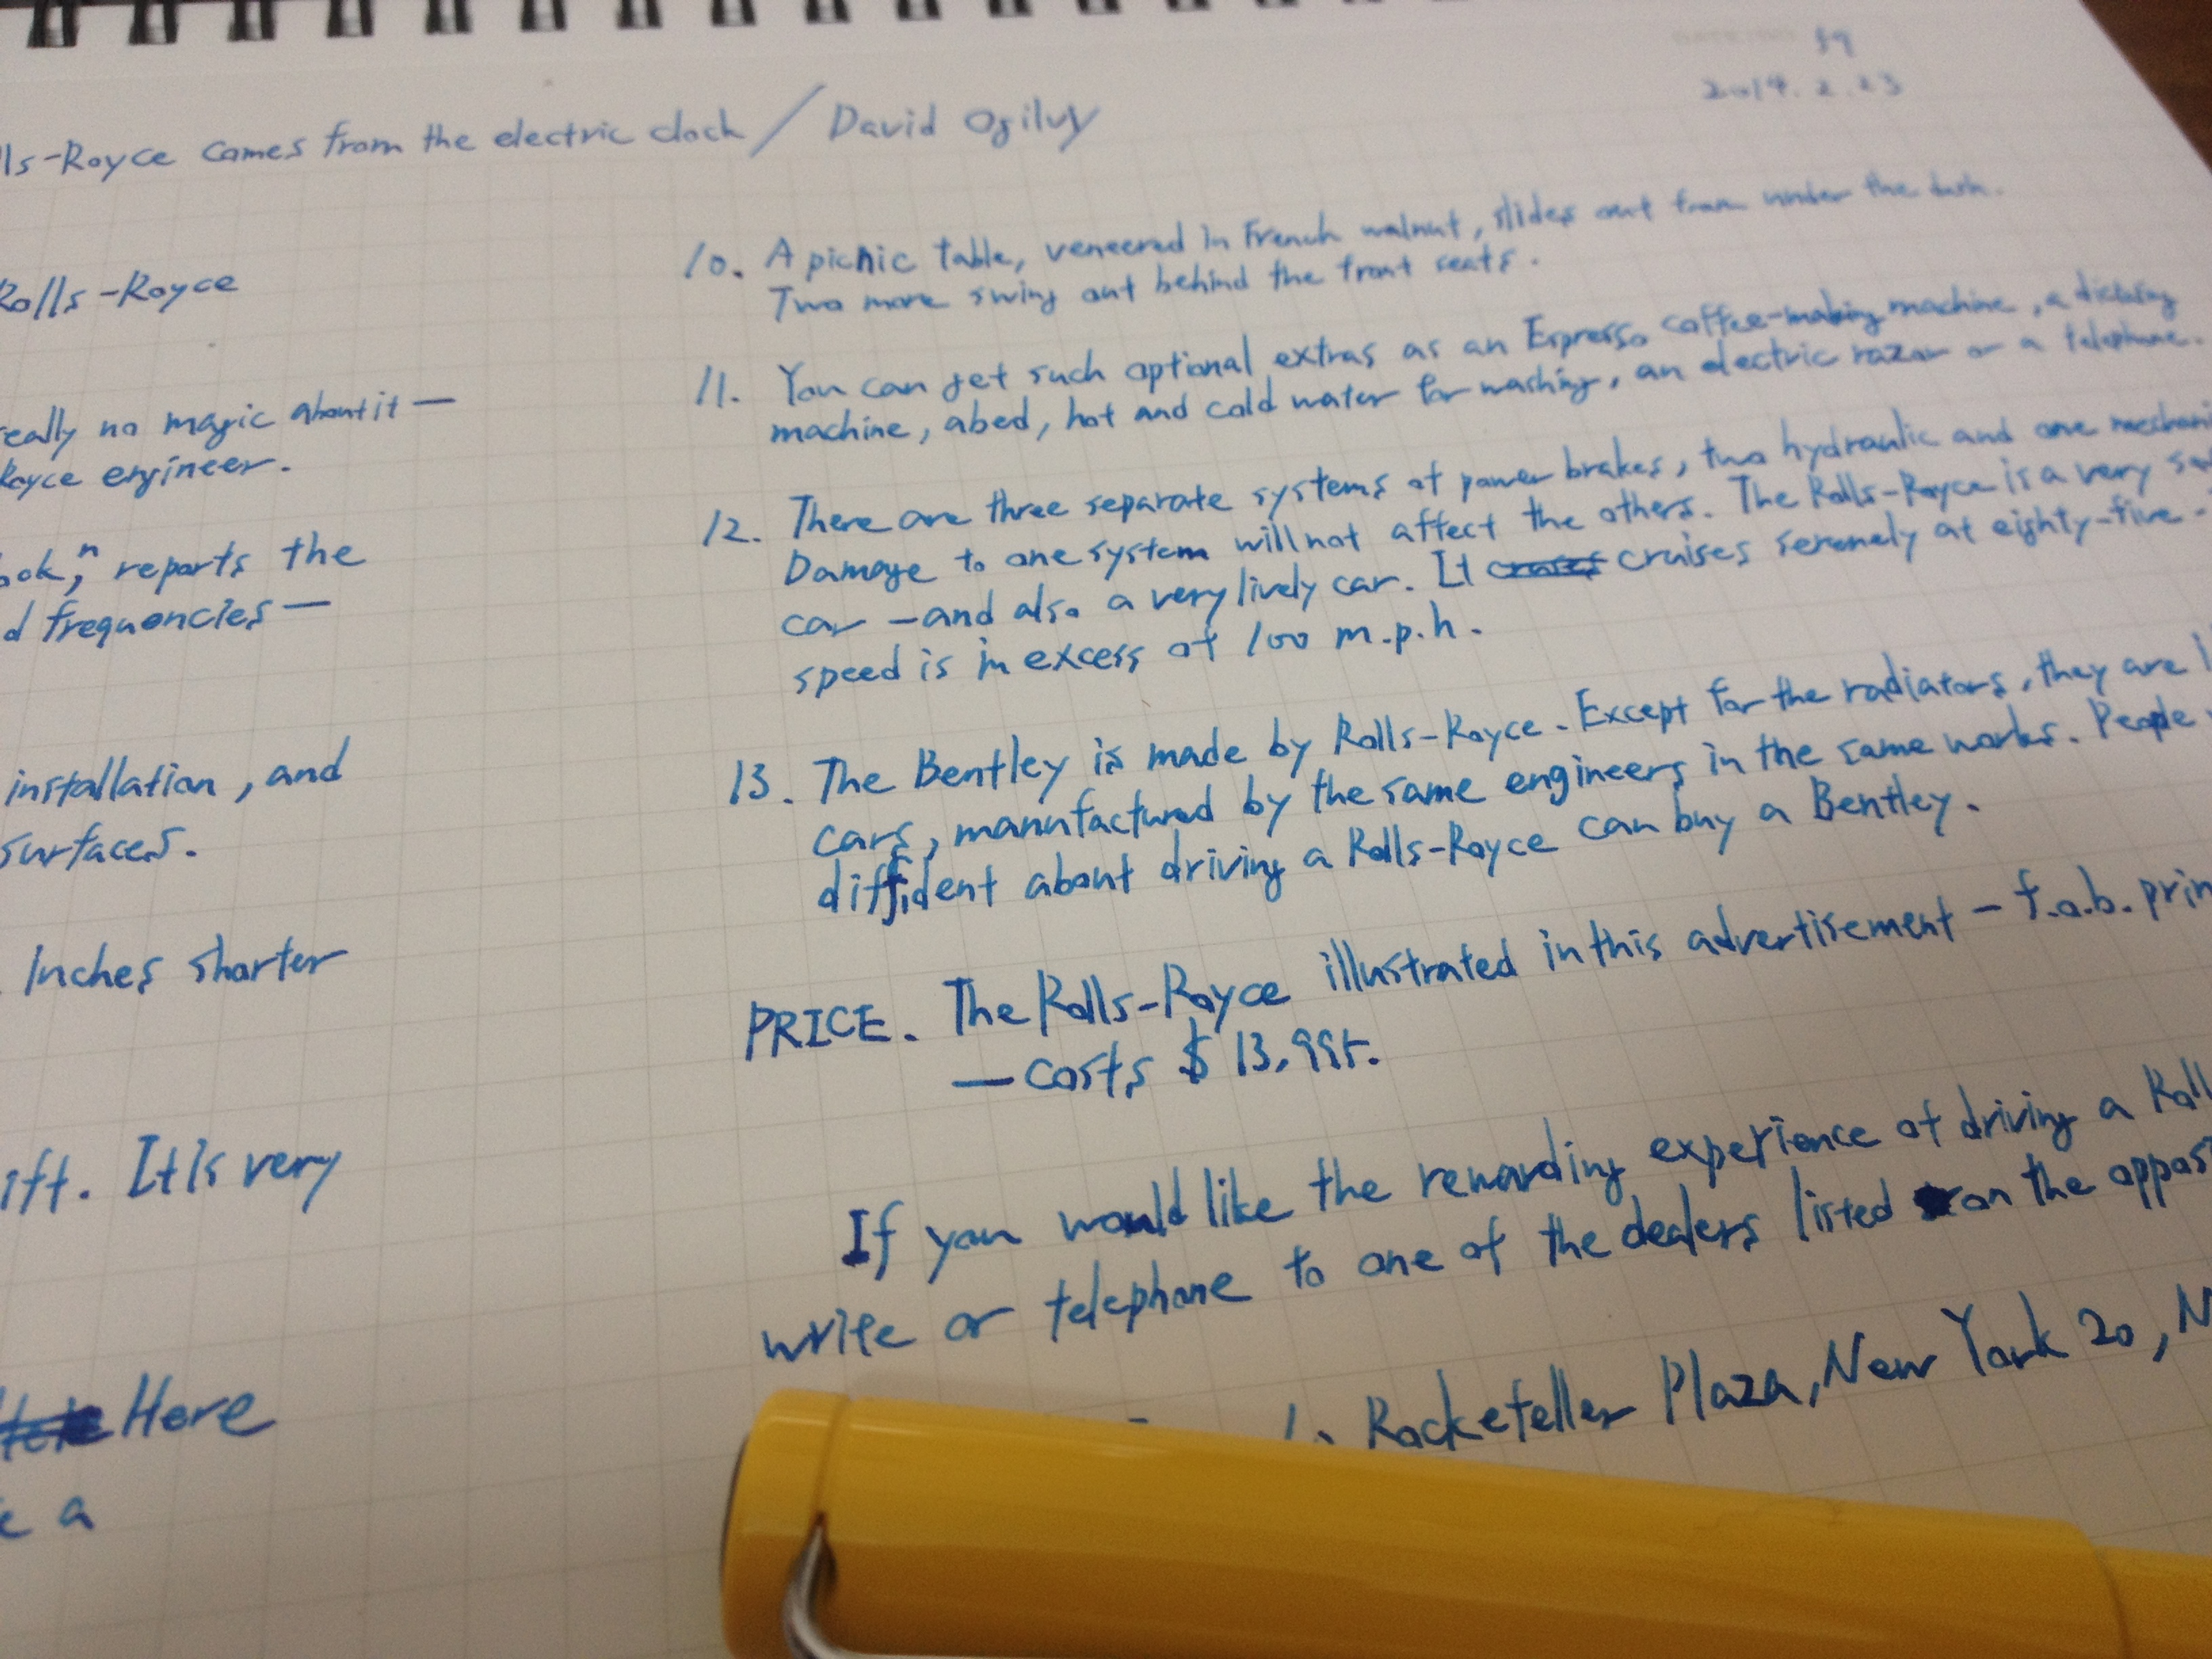 59
2014.2.23
lls-Royce comes from the electric clock / David Ogilvy
Rolls-Royce
really no magic about it —
Royce engineer.
ook," reports the
d frequencies —
installation, and
surfaces.
Inches shorter
ift. It is very
Here
a
10. A picnic table, veneered in French walnut, slides out from under the dash.
Two more swing out behind the front seats.
11. You can get such optional extras as an Espresso coffee-making machine, a dictating
machine, a bed, hot and cold water for washing, an electric razor or a telephone.
12. There are three separate systems of power brakes, two hydraulic and one mechani
Damage to one system will not affect the others. The Rolls-Royce is a very saf
car - and also a very lively car. It cruises serenely at eighty-five.
speed is in excess of 100 m.p.h.
13. The Bentley is made by Rolls-Royce. Except for the radiators, they are
cars, manufactured by the same engineers in the same works. People
diffident about driving a Rolls-Royce can buy a Bentley.
PRICE. The Rolls-Royce illustrated in this advertisement - f.o.b. prin
— costs $13,995.
If you would like the rewarding experience of driving a Roll
write or telephone to one of the dealers listed on the oppos
Rockefeller Plaza, New York 20, N